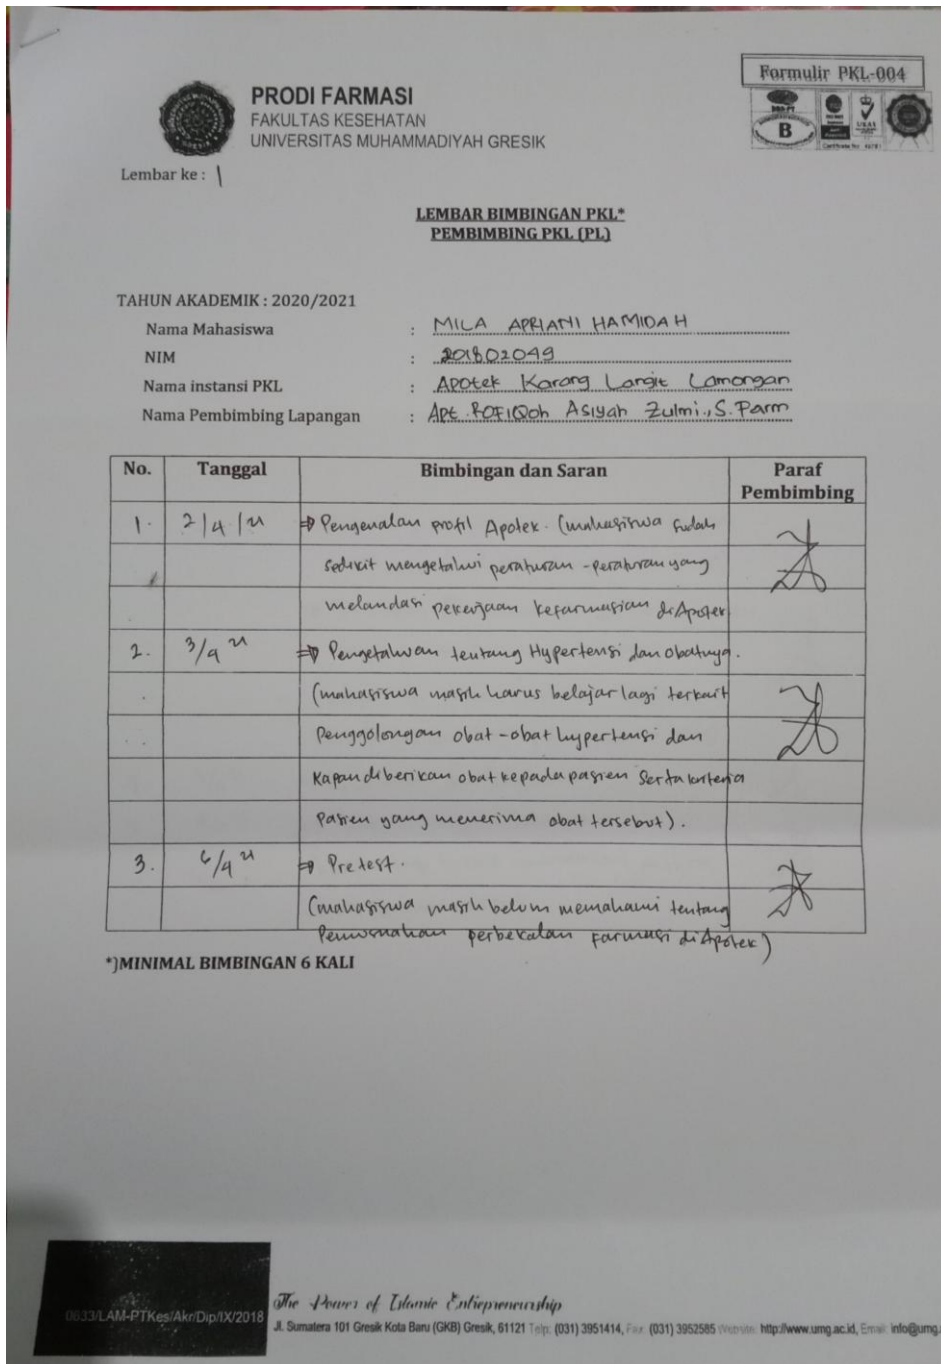 Formulir PKL-004
PRODI FARMASI
FAKULTAS KESEHATAN
UNIVERSITAS MUHAMMADIYAH GRESIK
B
Lembar ke : 1
LEMBAR BIMBINGAN PKL*
PEMBIMBING PKL (PL)
TAHUN AKADEMIK : 2020/2021
Nama Mahasiswa : MILA APRIANI HAMIDAH
NIM : 201802049
Nama instansi PKL : Apotek Karang Langit Lamongan
Nama Pembimbing Lapangan : Apt. ROFIQoh Asiyah Zulmi., S. Farm
No. Tanggal Bimbingan dan Saran Paraf Pembimbing
1. 2/4/21 ⇒ Pengenalan profil Apotek. (mahasiswa sudah
sedikit mengetahui peraturan-peraturan yang
melandasi pekerjaan kefarmasian di Apotek
2. 3/4 21 ⇒ Pengetahuan tentang Hypertensi dan obatnya.
(mahasiswa masih harus belajar lagi terkait
Penggolongan obat-obat hypertensi dan
Kapan diberikan obat kepada pasien serta kriteria
Pasien yang menerima obat tersebut).
3. 6/4 21 ⇒ Pretest.
(mahasiswa masih belum memahami tentang
Pemusnahan perbekalan farmasi di Apotek)
*)MINIMAL BIMBINGAN 6 KALI
0833/LAM-PTKes/Akr/Dip/IX/2018
The Power of Islamic Entrepreneurship
Jl. Sumatera 101 Gresik Kota Baru (GKB) Gresik, 61121 Telp: (031) 3951414, Fax: (031) 3952585 Website: http://www.umg.ac.id, Email: info@umg.